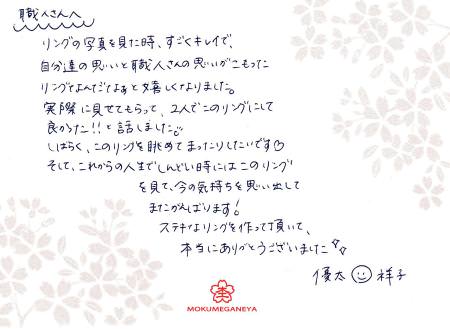 職人さんへ
リングの写真を見た時、すごくキレイで、
自分達の思いと職人さんの思いがこもった
リングなんだなぁと嬉しくなりました。
実際に見せてもらって、2人でこのリングにして
良かった!!と話しました。
しばらく、このリングを眺めてまったりしたいです♡
そして、これからの人生でしんどい時にはこのリング
を見て、今の気持ちを思い出して
またがんばります!
ステキなリングを作って頂いて、
本当にありがとうございました☆☆
優太 ☺ 祥子
MOKUMEGANEYA